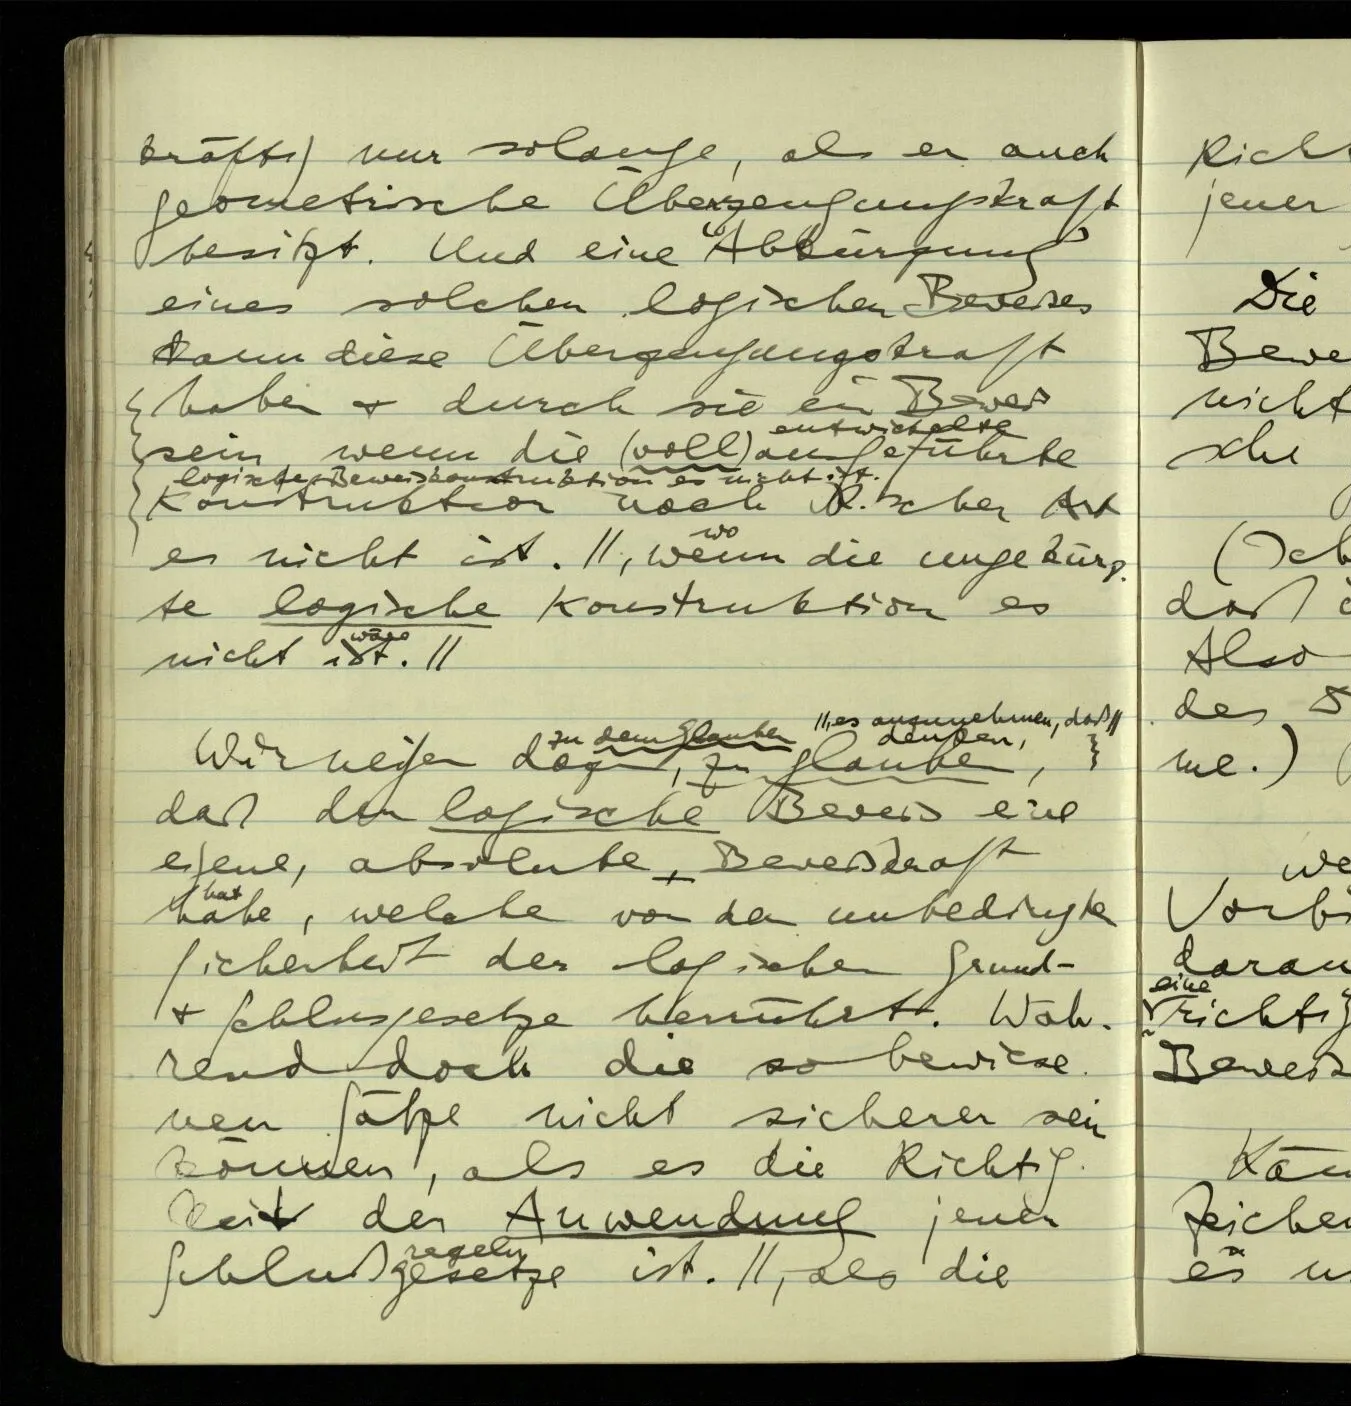 kräftig nur solange, als er auch
geometrische Überzeugungskraft
besitzt. Und eine “Abkürzung”
eines solchen logischen Beweises
kann diese Überzeugungskraft
haben + durch sie ein Beweis
sein, wenn die (voll) ausgeführte
entwickelte
logische Beweiskonstruktion es nicht ist.
Konstruktion nach R.scher Art
es nicht ist. //, wenn die ungekürz-
wo
te logische Konstruktion es
nicht ist. //
wäre
zu dem Glauben //, es anzunehmen, daß//
denken,
Wir neigen dazu, zu glauben,
daß der logische Beweis eine
eigene, absolute, Beweiskraft
hat
habe, welche von der unbedingten
Sicherheit der logischen Grund-
+ Schlußgesetze herrührt. Wäh-
rend doch die so bewiese-
nen Sätze nicht sicherer sein
können, als es die Richtig-
keit der Anwendung jener
regeln
Schlußgesetze ist. //, als die
jener
Die
Bewe
nicht
Also
des
me.)
we
Vorbi
daran
eine
richtig
Beweis
Zeichen
es